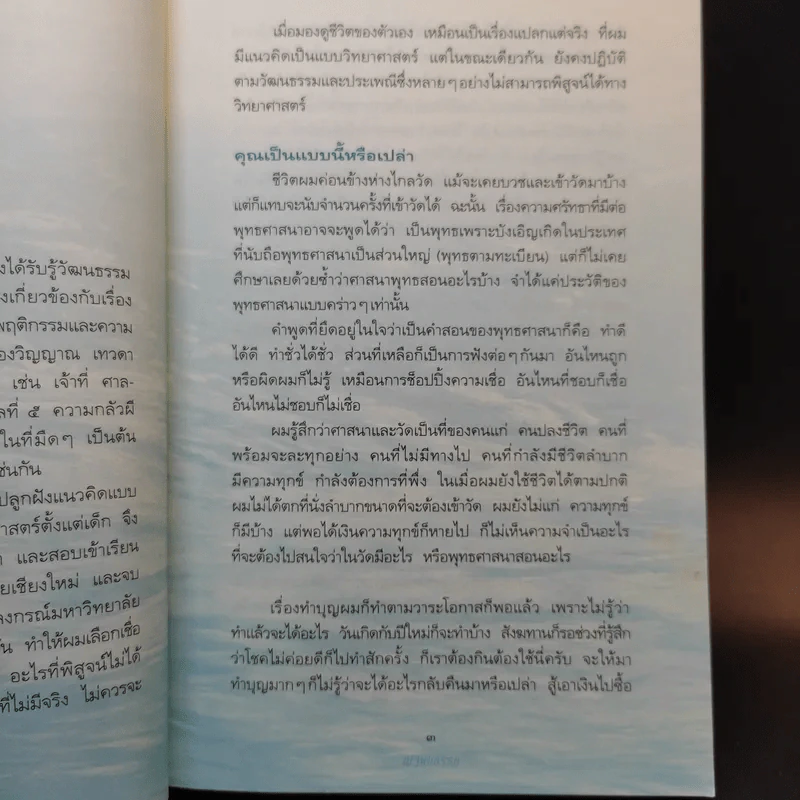 งได้รับรู้วัฒนธรรม
งเกี่ยวข้องกับเรื่อง
พฤติกรรมและความ
องวิญญาณ เทวดา
เช่น เจ้าที่ ศาล-
ลที่ ๕ ความกลัวผี
ในที่มืดๆ เป็นต้น
ช่นกัน
ปลูกฝังแนวคิดแบบ
าสตร์ตั้งแต่เด็ก จึง
และสอบเข้าเรียน
ยเชียงใหม่ และจบ
ลงกรณ์มหาวิทยาลัย
ัน ทำให้ผมเลือกเชื่อ
อะไรที่พิสูจน์ไม่ได้
ที่ไม่มีจริง ไม่ควรจะ
เมื่อมองดูชีวิตของตัวเอง เหมือนเป็นเรื่องแปลกแต่จริง ที่ผม
มีแนวคิดเป็นแบบวิทยาศาสตร์ แต่ในขณะเดียวกัน ยังคงปฏิบัติ
ตามวัฒนธรรมและประเพณีซึ่งหลายๆอย่างไม่สามารถพิสูจน์ได้ทาง
วิทยาศาสตร์
คุณเป็นแบบนี้หรือเปล่า
ชีวิตผมค่อนข้างห่างไกลวัด แม้จะเคยบวชและเข้าวัดมาบ้าง
แต่ก็แทบจะนับจำนวนครั้งที่เข้าวัดได้ ฉะนั้น เรื่องความศรัทธาที่มีต่อ
พุทธศาสนาอาจจะพูดได้ว่า เป็นพุทธเพราะบังเอิญเกิดในประเทศ
ที่นับถือพุทธศาสนาเป็นส่วนใหญ่ (พุทธตามทะเบียน) แต่ก็ไม่เคย
ศึกษาเลยด้วยซ้ำว่าศาสนาพุทธสอนอะไรบ้าง จำได้แค่ประวัติของ
พุทธศาสนาแบบคร่าวๆเท่านั้น
คำพูดที่ยึดอยู่ในใจว่าเป็นคำสอนของพุทธศาสนาก็คือ ทำดี
ได้ดี ทำชั่วได้ชั่ว ส่วนที่เหลือก็เป็นการฟังต่อๆกันมา อันไหนถูก
หรือผิดผมก็ไม่รู้ เหมือนการช็อปปิ้งความเชื่อ อันไหนที่ชอบก็เชื่อ
อันไหนไม่ชอบก็ไม่เชื่อ
ผมรู้สึกว่าศาสนาและวัดเป็นที่ของคนแก่ คนปลงชีวิต คนที่
พร้อมจะละทุกอย่าง คนที่ไม่มีทางไป คนที่กำลังมีชีวิตลำบาก
มีความทุกข์ กำลังต้องการที่พึ่ง ในเมื่อผมยังใช้ชีวิตได้ตามปกติ
ผมไม่ได้ตกที่นั่งลำบากขนาดที่จะต้องเข้าวัด ผมยังไม่แก่ ความทุกข์
ก็มีบ้าง แต่พอได้เงินความทุกข์ก็หายไป ก็ไม่เห็นความจำเป็นอะไร
ที่จะต้องไปสนใจว่าในวัดมีอะไร หรือพุทธศาสนาสอนอะไร
เรื่องทำบุญผมก็ทำตามวาระโอกาสก็พอแล้ว เพราะไม่รู้ว่า
ทำแล้วจะได้อะไร วันเกิดกับปีใหม่ก็จะทำบ้าง สังฆทานก็รอช่วงที่รู้สึก
ว่าโชคไม่ค่อยดีก็ไปทำสักครั้ง ก็เราต้องกินต้องใช้นี่ครับ จะให้มา
ทำบุญมากๆก็ไม่รู้ว่าจะได้อะไรกลับคืนมาหรือเปล่า สู้เอาเงินไปซื้อ
๓